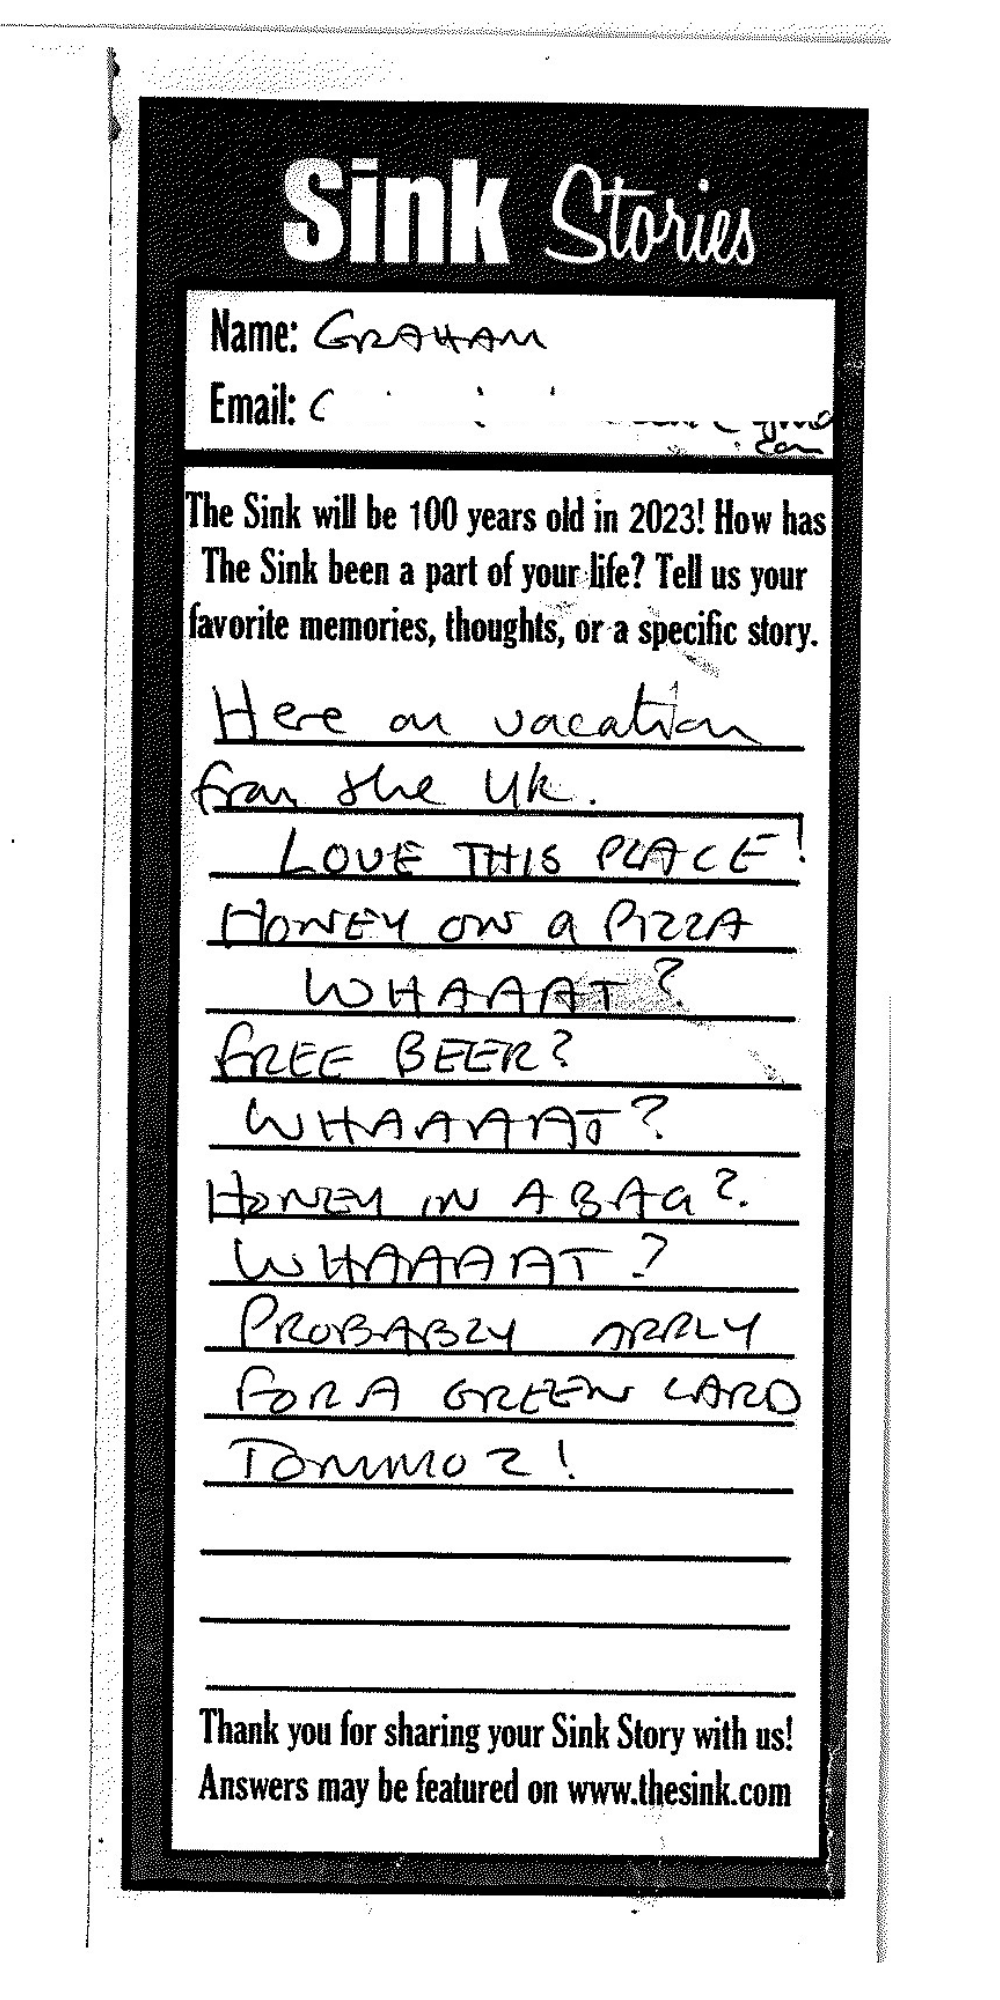 Sink Stories
Name: GRAHAM
Email:
The Sink will be 100 years old in 2023! How has
The Sink been a part of your life? Tell us your
favorite memories, thoughts, or a specific story.
Here on vacation
from the UK.
LOVE THIS PLACE!
HONEY ON a PIZZA
WHAAAT?
FREE BEER?
WHAAAAAT?
HONEY IN A BAG?
WHAAAAAT?
PROBABLY APPLY
FOR A GREEN CARD
TOMMOZ!
Thank you for sharing your Sink Story with us!
Answers may be featured on www.thesink.com